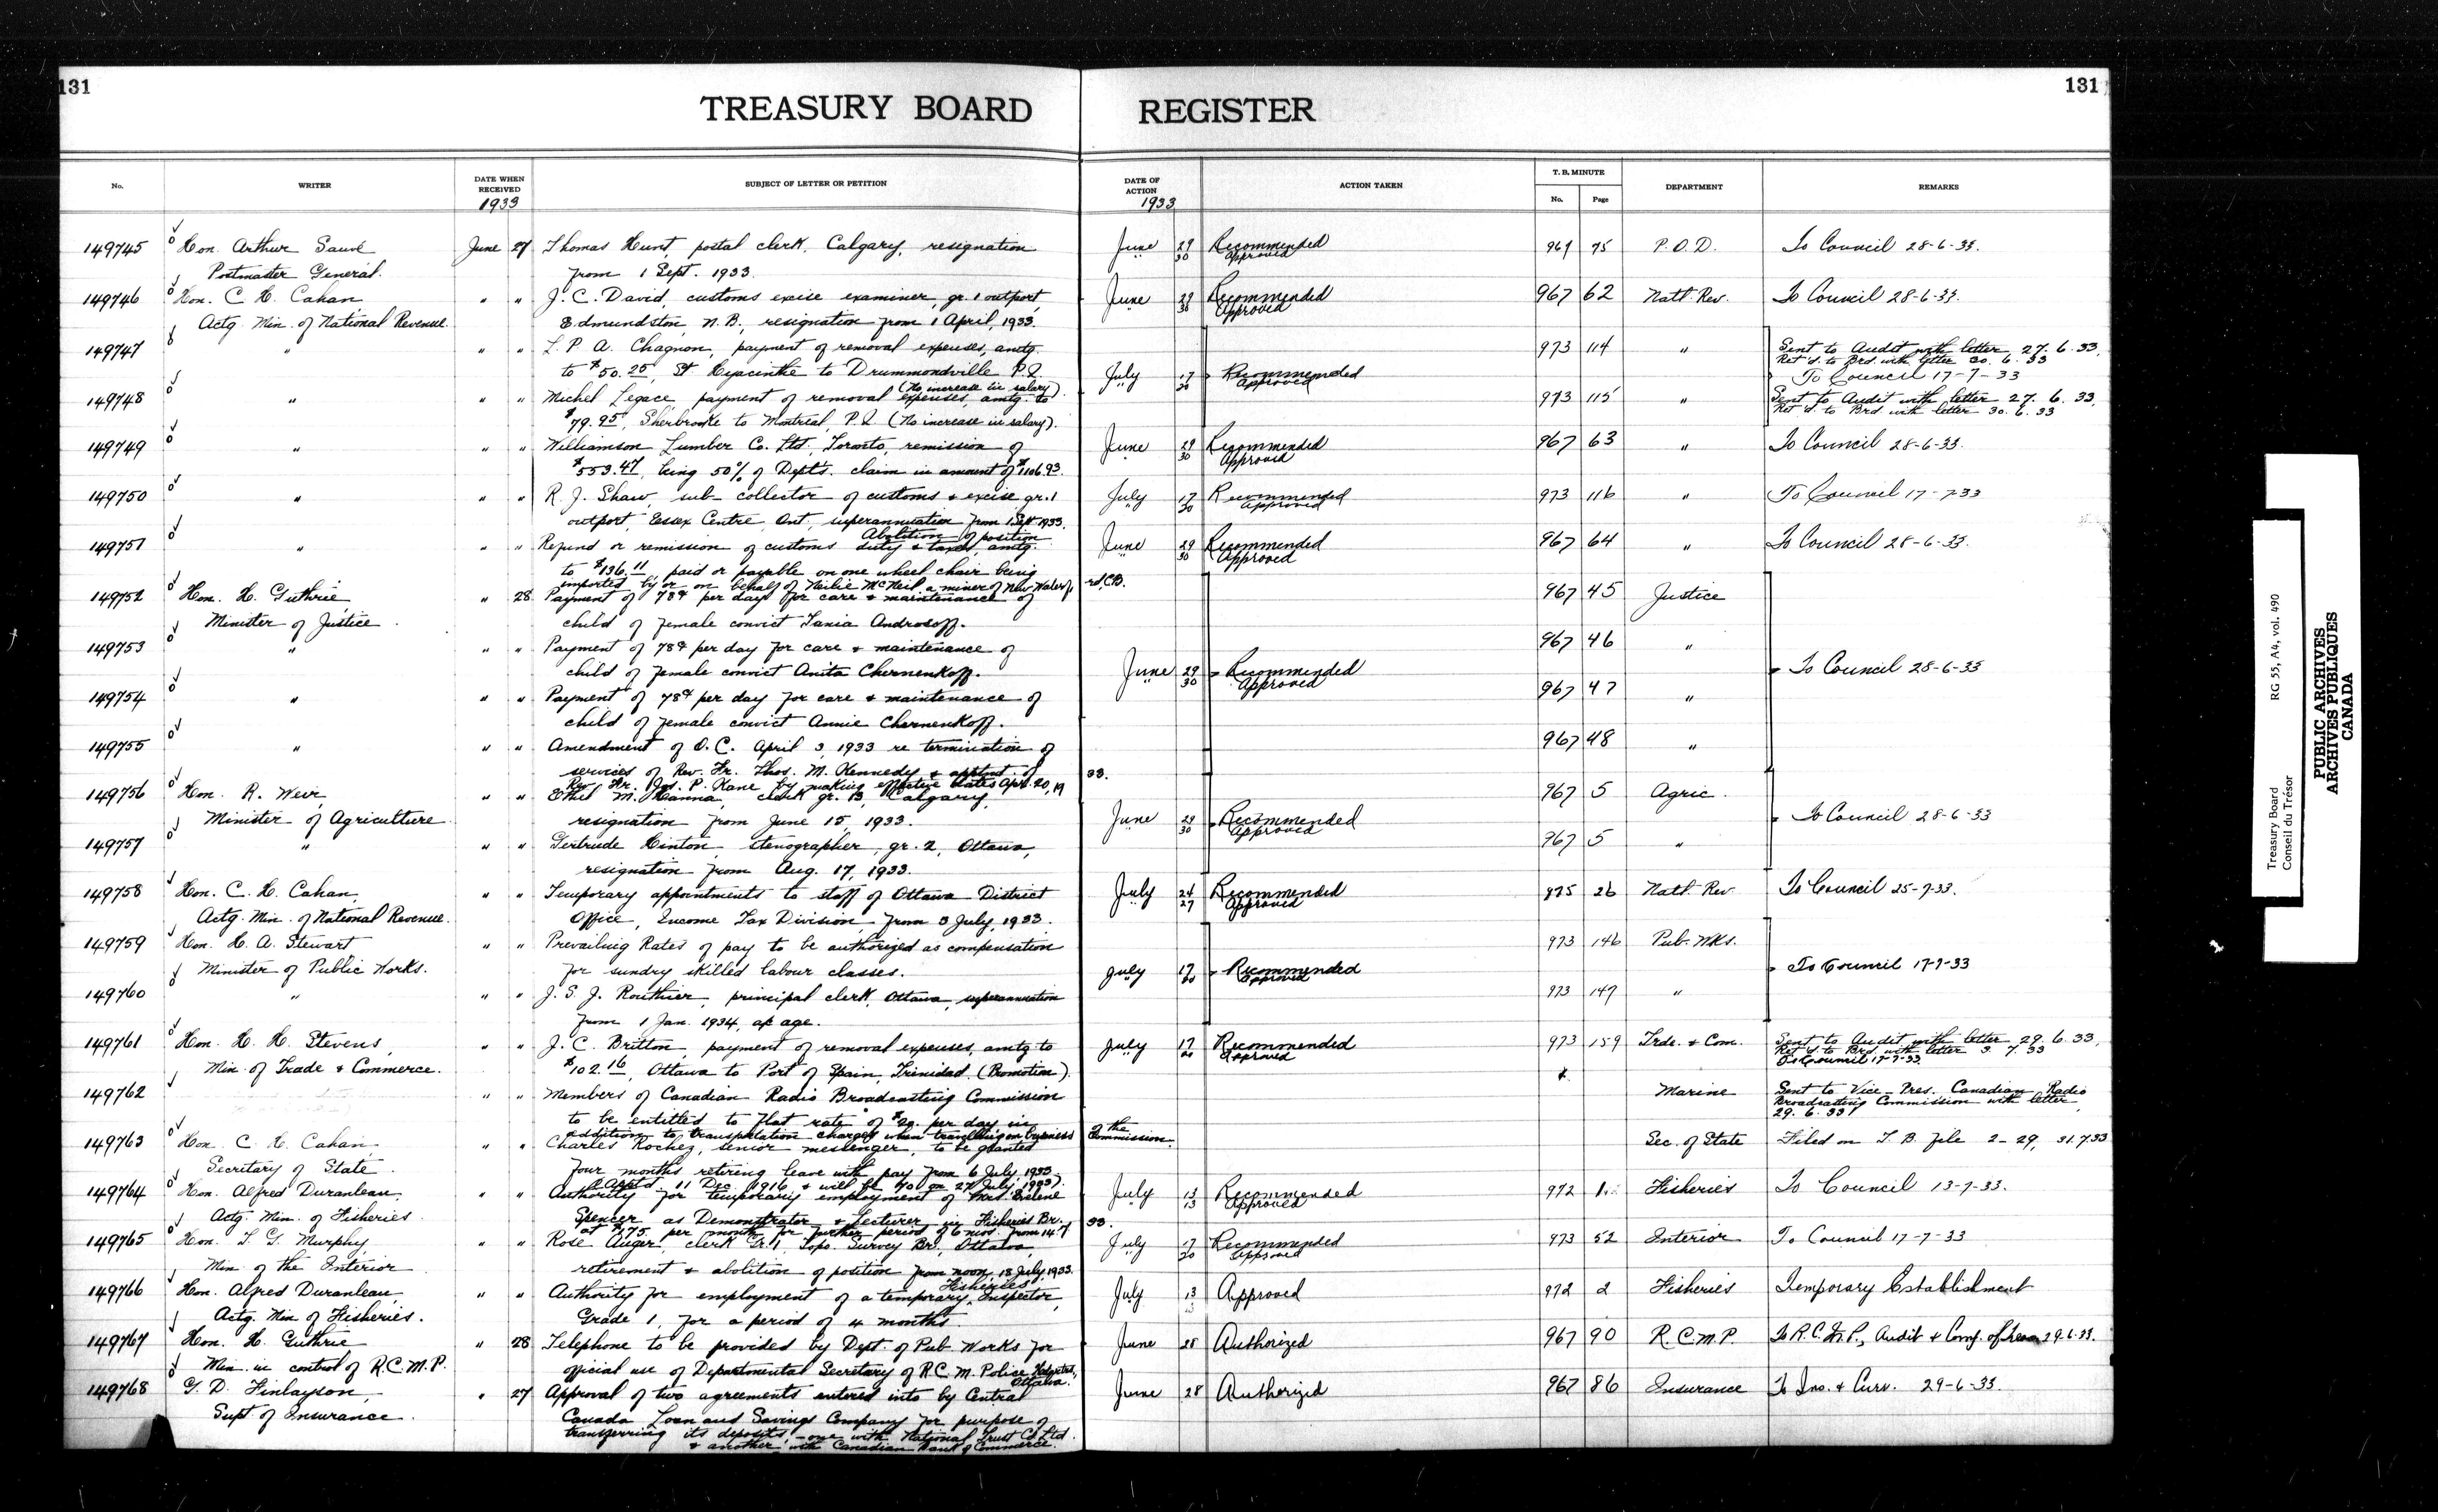 131
131
TREASURY BOARD REGISTER
No. WRITER DATE WHEN RECEIVED SUBJECT OF LETTER OR PETITION DATE OF ACTION ACTION TAKEN T. B. MINUTE No. Page DEPARTMENT REMARKS
1933 1933
149745 Hon. Arthur Sauvé June 27 Thomas Hunt, postal clerk, Calgary, resignation June 29 Recommended 967 75 P.O.D. To Council 28-6-33.
Postmaster General. from 1 Sept. 1933. " 30 Approved
149746 Hon. C. H. Cahan " " J. C. David, customs excise examiner, gr. 1 outport, June 29 Recommended 967 62 Natl. Rev. To Council 28-6-33.
Actg. Min. of National Revenue. Edmundston, N.B., resignation from 1 April, 1933. " 30 Approved
149747 " " " L. P. A. Chagnon, payment of removal expenses, amtg. 973 114 " Sent to Audit with letter 27.6.33.
Ret'd. to Brd. with letter 30.6.33
to $50.25, St Hyacinthe to Drummondville P.Q. July 17 Recommended To Council 17-7-33
(No increase in salary) " 20 Approved
149748 " " " Michel Legace payment of removal expenses, amtg. to 973 115 " Sent to Audit with letter 27.6.33.
Ret'd. to Brd with letter 30.6.33
$79.95, Sherbrooke to Montreal, P.Q. (No increase in salary).
149749 " " " Williamson Lumber Co. Ltd. Toronto, remission of June 29 Recommended 967 63 " To Council 28-6-33.
$553.47, being 50% of Dept's. claim in amount of $1106.93. " 30 Approved
149750 " " " R. J. Shaw, sub-collector of customs & excise gr. 1 July 17 Recommended 973 116 " To Council 17-7-33
outport, Essex Centre, Ont., superannuation from 1 Sept 1933. " 20 Approved
Abolition of position
149751 " " " Refund or remission of customs duty & taxes, amtg. June 29 Recommended 967 64 " To Council 28-6-33.
to $136.11, paid or payable on one wheel chair being " 30 Approved
imported by or on behalf of Neilie McNeil a miner of New Waterf rd, C.B.
149752 Hon. H. Guthrie " 28 Payment of 78¢ per day for care & maintenance of 967 45 Justice
Minister of Justice. child of female convict Tania Androsoff.
149753 " " " Payment of 78¢ per day for care & maintenance of 967 46 "
child of female convict Anita Chernenkoff. June 29 Recommended To Council 28-6-33
" 30 Approved
149754 " " " Payment of 78¢ per day for care & maintenance of 967 47 "
child of female convict Annie Chernenkoff.
149755 " " " Amendment of O.C. April 3, 1933 re termination of 967 48 "
services of Rev. Fr. Thos. M. Kennedy & apptmt. of
Rev. Fr. Jos. P. Kane by making effective dates Apr. 20, 19 33.
149756 Hon. R. Weir, " " Ethel M. Hanna, clerk gr. 1B, Calgary, 967 5 Agric.
Minister of Agriculture resignation from June 15, 1933. June 29 Recommended To Council 28-6-33
" 30 Approved
149757 " " " Gertrude Hinton, stenographer, gr. 2, Ottawa, 967 5 "
resignation from Aug. 17, 1933.
149758 Hon. C. H. Cahan, " " Temporary appointments to staff of Ottawa District July 24 Recommended 975 26 Natl. Rev To Council 25-7-33.
Actg. Min. of National Revenue. Office, Income Tax Division, from 3 July, 1933. " 27 Approved
149759 Hon. H. A. Stewart " " Prevailing Rates of pay to be authorized as compensation 973 146 Pub. Wks.
Minister of Public Works. for sundry skilled labour classes. July 17 Recommended To Council 17-7-33
" 20 Approved
149760 " " " J. S. J. Routhier, principal clerk, Ottawa, superannuation 973 149 "
from 1 Jan. 1934, ac age.
149761 Hon. H. H. Stevens, " " J. C. Britton, payment of removal expenses, amtg to July 17 Recommended 973 159 Trde. & Com. Sent to Audit with letter 29.6.33,
Ret'd. to Brd. with letter 3.7.33
Min. of Trade & Commerce. $102.16, Ottawa to Port of Spain, Trinidad. (Promotion). " 20 Approved To Council 17-7-33
149762 " " Members of Canadian Radio Broadcasting Commission Marine Sent to Vice-Pres. Canadian Radio
Broadcasting Commission with letter
to be entitled to flat rate of $20. per day in 29.6.33
addition to transportation charges when travelling on business of the Commission.
149763 Hon. C. H. Cahan " " Charles Rochez, senior messenger, to be granted Sec. of State Filed on T.B. file 2-29, 31.7.33
Secretary of State. four months retiring leave with pay from 6 July, 1933.
(Apptd. 11 Dec. 1916 & will be 70 on 27 July, 1933).
149764 Hon. Alfred Duranleau, " " Authority for temporary employment of Mrs. Evelene July 13 Recommended 972 1 Fisheries To Council 13-7-33.
Actg. Min. of Fisheries. Spencer as Demonstrator & Lecturer in Fisheries Br. " 13 Approved
at $175. per month for further period of 6 mos. from 14.7 33.
149765 Hon. T. G. Murphy, " " Rose Auger, clerk Gr. 1, Topo. Survey Br., Ottawa, July 17 Recommended 973 52 Interior To Council 17-7-33
Min. of the Interior retirement & abolition of position from noon, 18 July, 1933. " 20 Approved
149766 Hon. Alfred Duranleau, " " Authority for employment of a temporary Fisheries Inspector, July 13 Approved 972 2 Fisheries Temporary Establishment
Actg. Min. of Fisheries. Grade 1, for a period of 4 months.
149767 Hon. H. Guthrie " 28 Telephone to be provided by Dept. of Pub. Works for June 28 Authorized 967 90 R.C.M.P. To R.C.M.P., Audit & Comp. of Treas 29.6.33.
Min. in control of R.C.M.P. official use of Departmental Secretary of R.C.M. Police Hdqrtrs., Ottawa.
149768 G. D. Finlayson, " 27 Approval of two agreements entered into by Central June 28 Authorized 967 86 Insurance To Ins. & Curr. 29-6-33.
Supt. of Insurance. Canada Loan and Savings Company for purpose of
transferring its deposits, - one with National Trust Co. Ltd.
& another with Canadian Bank of Commerce.
Treasury Board RG 55, A4, vol. 490
Conseil du Trésor
PUBLIC ARCHIVES
ARCHIVES PUBLIQUES
CANADA